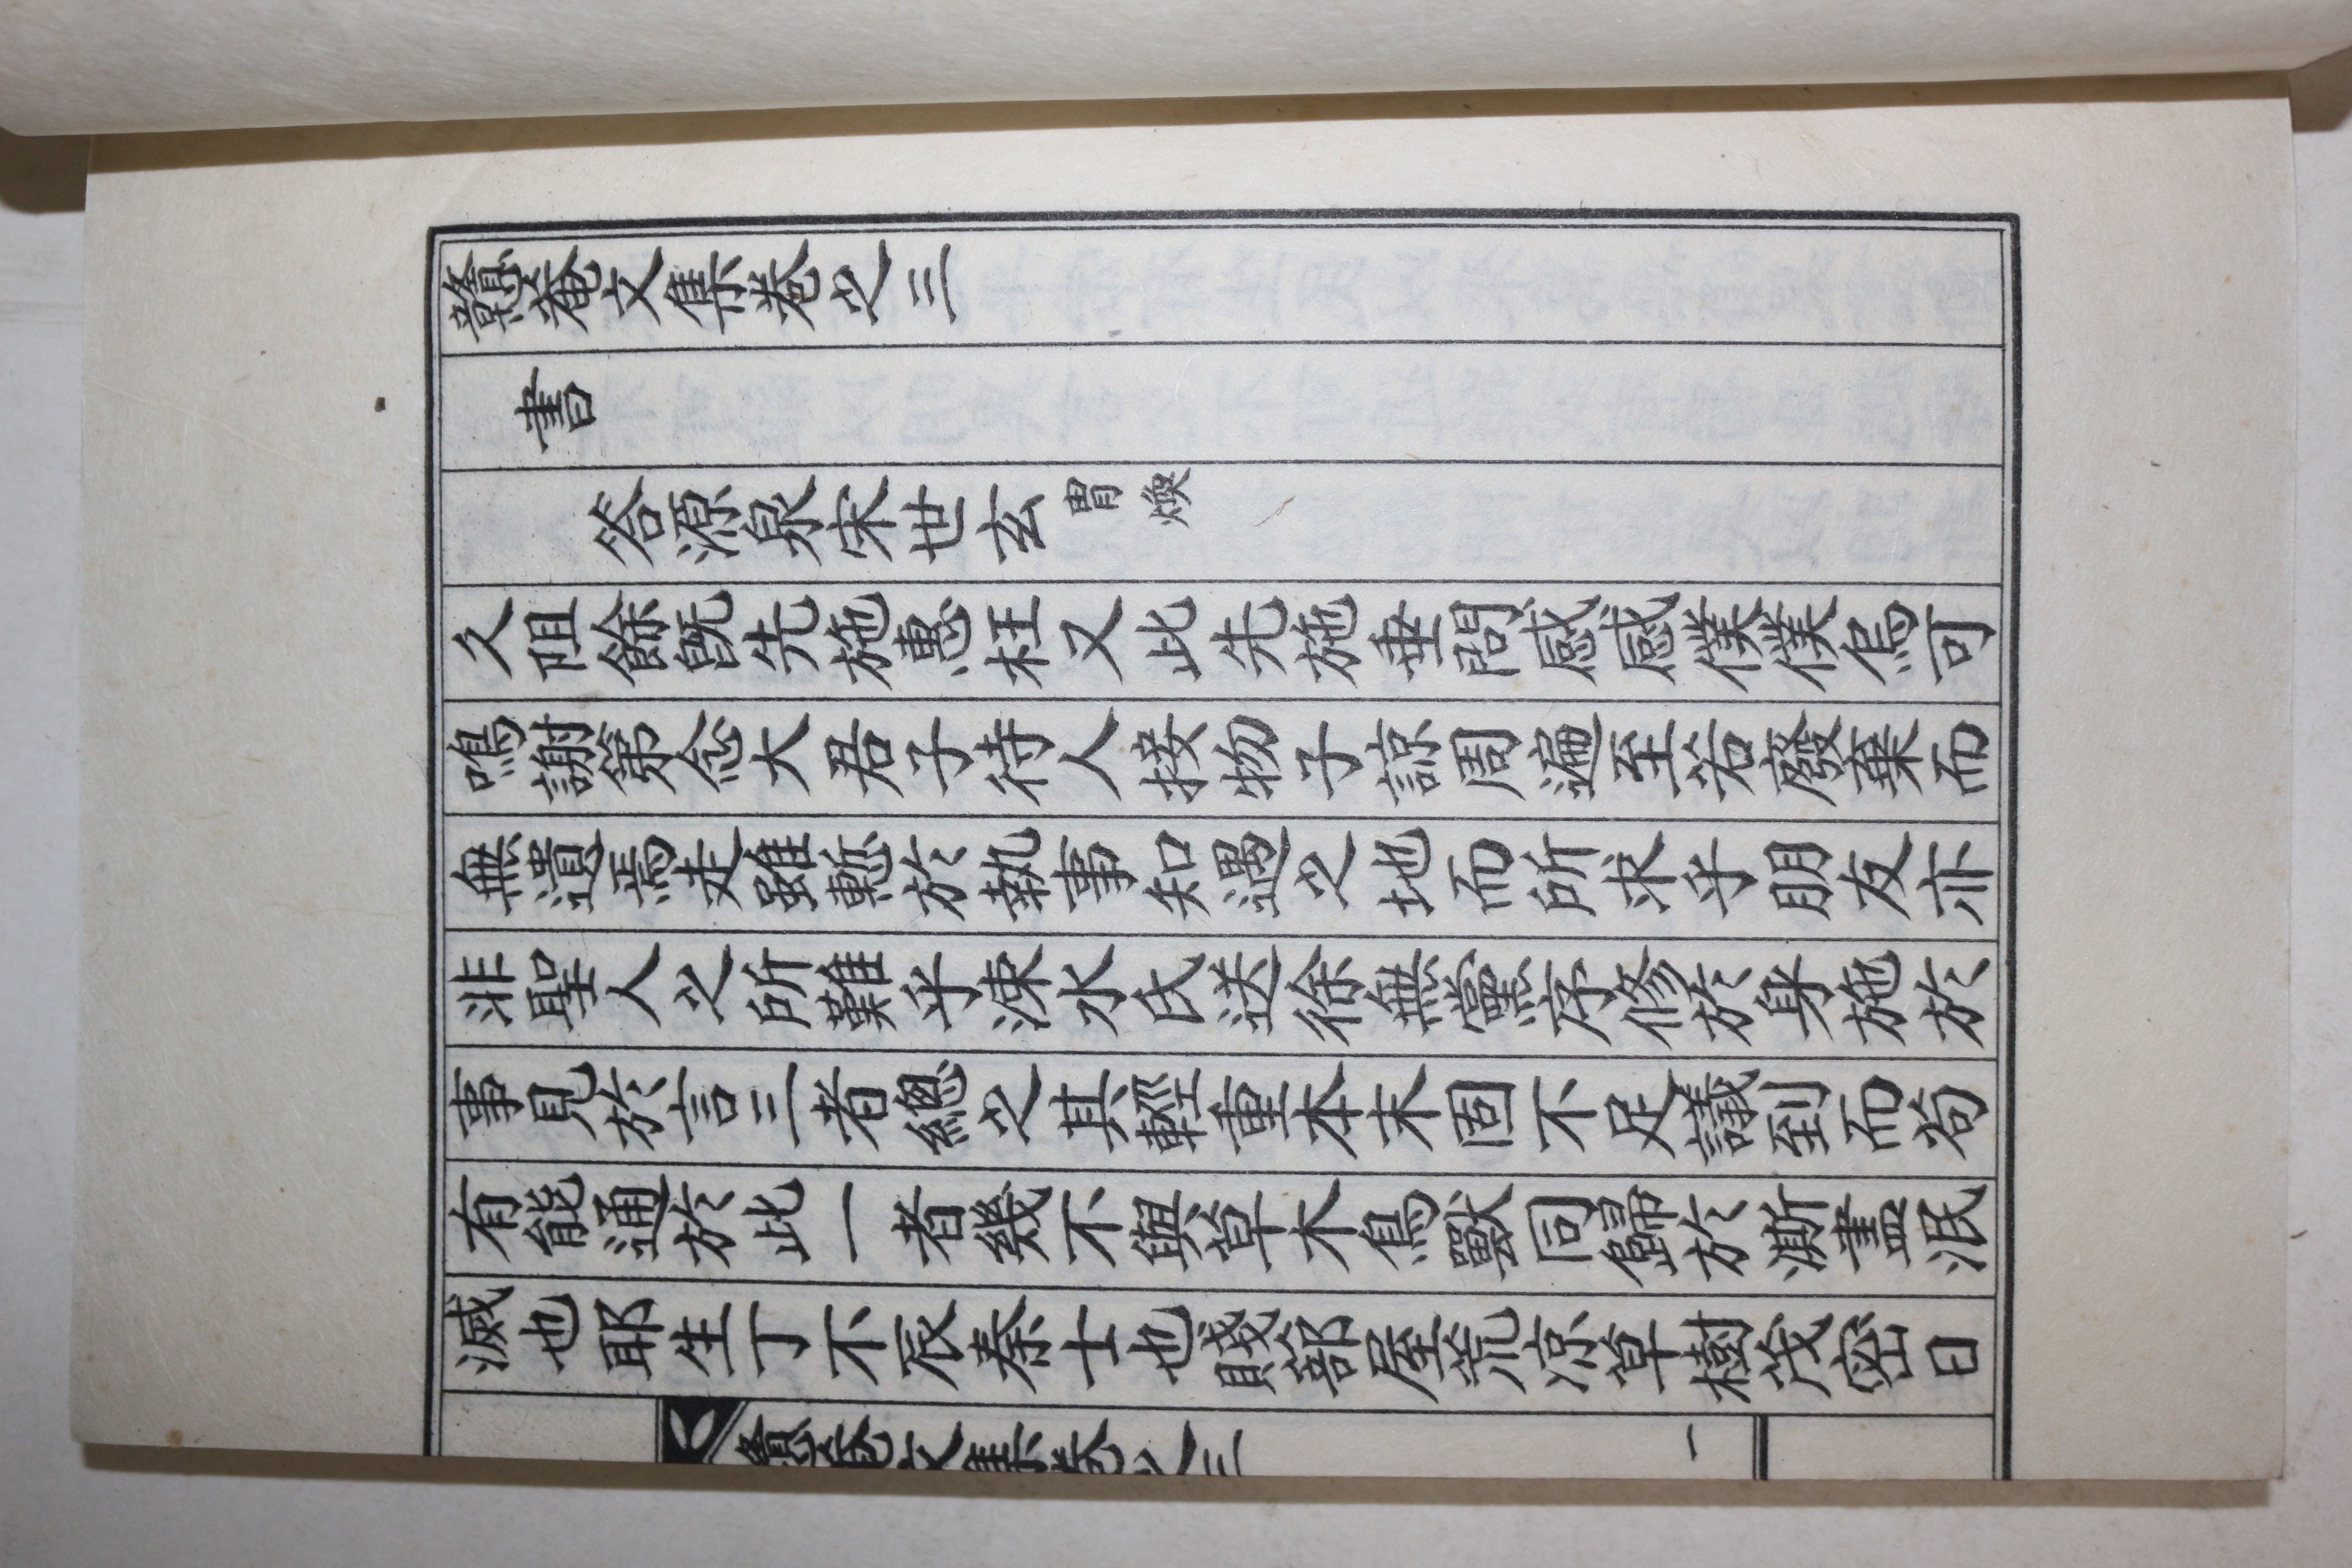 戇菴文集卷之三
書
答源泉宋世玄 冑煥
久阻餘旣先施惠枉又此先施垂問感感僕僕烏可
鳴謝第念大君子待人接物子諒周遍至若廢棄而
無遺焉走雖慙於執事知遇之地而所求乎朋友亦
非聖人之所難乎涑水氏送徐無黨序修於身施於
事見於言三者總之其輕重本末固不足議到而苟
有能通於此一者幾不與草木鳥獸同歸於澌盡泯
滅也耶生丁不辰秦士也賤蔀屋荒凉草樹茂密日
戇菴文集卷之三
一